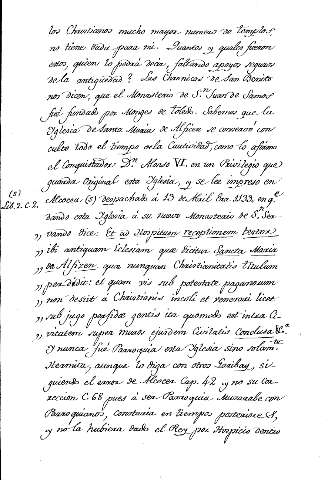 los Christianos mucho mayor numero de templos,
no tiene duda para mi. Quantos y quales fueron
estos, quien lo podrá decir, faltando apoyos seguros
de la antigüedad? Las Chronicas de San Benito
nos dicen, que el Monasterio de Sn. Juan de Samos
fué fundado por Monges de toledo. Sabemos que la
Iglesia de Santa Maria de Alficen se conservó con
culto todo el tiempo de la Cautividad, como lo afirma
el Conquistador Dn. Alonso VI. en un Privilegio que
guarda Original esta Iglesia, y se lee impreso en
(s) Alcocer (s) despachado à 13 de Maio Era 1133. en qe.
Lib. 2. C. 2. dando esta Iglesia à su nuevo Monasterio de Sn. Ser-
vando dice: Et ad Hospitum receptionem textera
„ ibi antiquam Eclesiam que dicitur Sancta Maria
„ de Alficen, que nunquam Christianitatis titulum
„ perdidit: et quam vis sub potestate paganorum
„ non desiit à Christianis incoli et venerari licet
„ sub jugo perfidae gentis ita quomodo est intra Ci-
„ vitatem super muros ejusdem Civitatis conclusa &a.
Y nunca fué Parroquia esta Iglesia sino solamte.
Hermita, aunque lo diga con otros Garibay, si-
guiendo el error de Alcocer Cap. 42 y no su Co-
rreccion C. 68 pues à ser Parroquia Muzarabe con
Parroquianos, constaria en tiempos posteriores,
y no la hubiera dado el Rey por Hospicio dentro